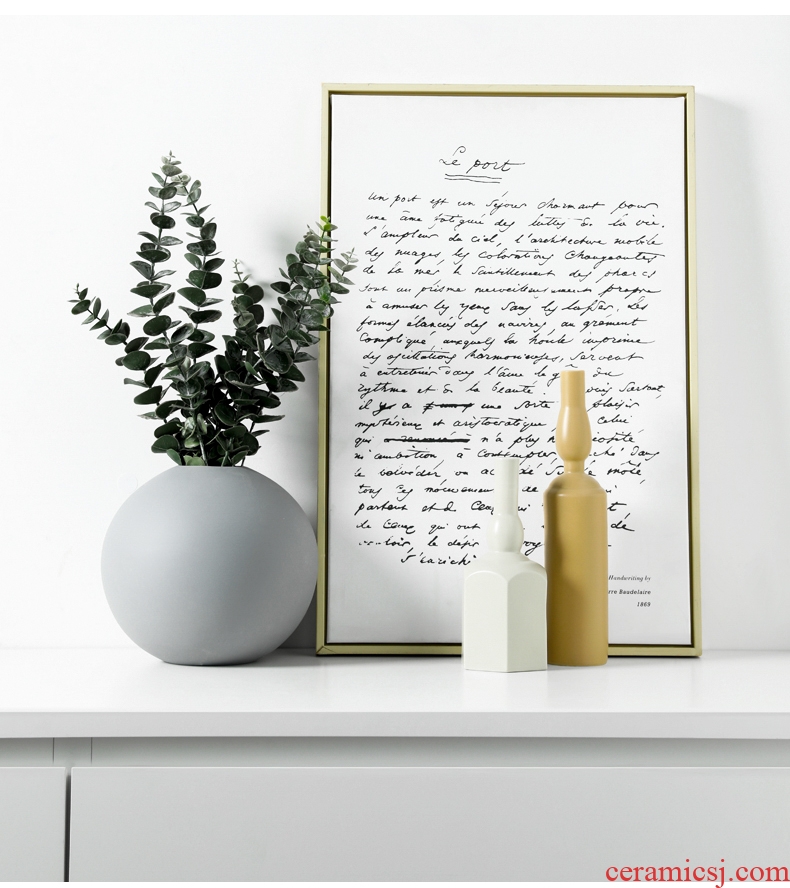 Le port
Un port est un séjour charmant pour
une âme fatiguée des luttes de la vie.
L'ampleur du ciel, l'architecture mobile
des nuages, les colorations changeantes
de la mer le scintillement des phares
sont un prisme merveilleusement propre
à amuser les yeux sans les lasser. Les
formes élancées des navires, au gréement
compliqué, auxquels la houle imprime
des oscillations harmonieuses, servent
à entretenir dans l'âme le du
rythme et de la beauté. surtout,
il y a une sorte plaisir
mystérieux et aristocratique celui
qui n'a plus
ni ambition à contempler dans
le belvédère ou
tous ces mouvements
partent et de ceux qui
de ceux qui ont de
le désir
s'enrichi
Handwriting by
rre Baudelaire
1869
ceramicsj.com